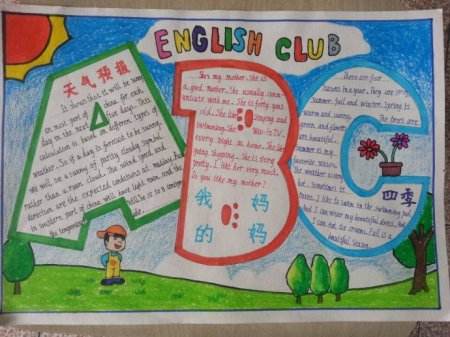 ENGLISH CLUB
天气预报
It shows that it will be sunny
on most part of china for each
day in the next few days. This
calculation is based on different types of
weather. So if a day is forecast to be sunny,
we will see a sunny or partly cloudy symbol
rather than a rain cloud. The wind speed and
direction are the expected conditions at midday
part of china will have light rain, and the
She's my mother. She is
a good mother. She usually comm-
unicate with me. She is forty years
old. She
and
swimming. She TV
every night at home. She
going shopping. She is very
pretty. I like her very much.
Do you like my mother?
我 妈
的 妈
There are four
seasons in a year. They are spring
summer, fall and winter. Spring is
warm and sunny. The trees are
green, and flowers
are beautiful.
summer is my
favorite season.
The weather is very
hot. Sometimes it
rains. I like to swim in the swimming pool
and I can wear my beautiful dress. And
I can eat ice cream. Fall is a
beautiful season.
四季